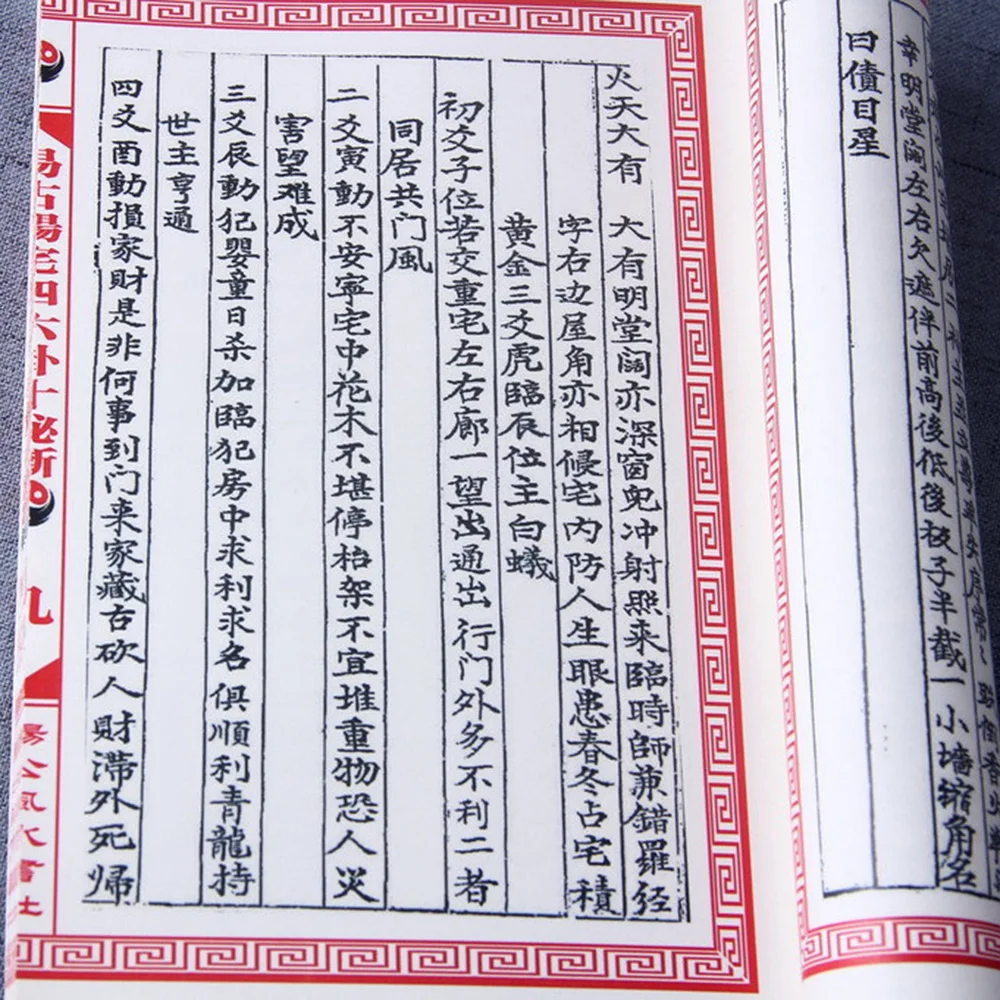 幸明堂闊左右欠遮伴前高後低後枝子半截一小墻缩角名
曰債目星
火天大有　大有明堂闊亦深窗兜冲射照来臨時師兼錯羅经
字右边屋角亦相侵宅内防人生眼患春冬占宅積
黄金三爻虎臨辰位主白蟻
初爻子位若交重宅左右廊一望出通出行门外多不利二者
同居共门風
二爻寅動不安寧宅中花木不堪停枱架不宜堆重物恐人災
害望难成
三爻辰動犯婴童日杀加臨犯房中求利求名俱順利青龍持
世主亨通
四爻酉動損家財是非何事到门来家藏古砍人財滞外死歸
九
楊公風水書社